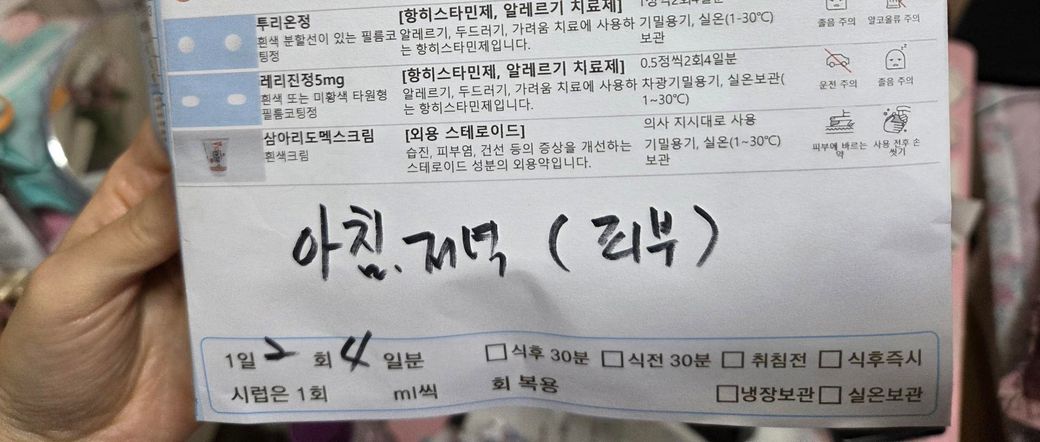 투리온정
[항히스타민제, 알레르기 치료제]
1정씩2회4일분
흰색 분할선이 있는 필름코팅정
알레르기, 두드러기, 가려움 치료에 사용하는 항히스타민제입니다.
기밀용기, 실온(1-30℃)보관
졸음 주의
알코올류 주의
레리진정5mg
[항히스타민제, 알레르기 치료제]
0.5정씩2회4일분
흰색 또는 미황색 타원형 필름코팅정
알레르기, 두드러기, 가려움 치료에 사용하는 항히스타민제입니다.
차광기밀용기, 실온보관(1~30℃)
운전 주의
졸음 주의
삼아리도멕스크림
[외용 스테로이드]
의사 지시대로 사용
흰색크림
습진, 피부염, 건선 등의 증상을 개선하는 스테로이드 성분의 외용약입니다.
기밀용기, 실온(1~30℃)보관
피부에 바르는 약
사용 전후 손 씻기
아침.저녁 (피부)
1일 2 회 4 일분 □식후 30분 □식전 30분 □ 취침전 □ 식후즉시
시럽은 1회 ml씩 회 복용 □냉장보관 □ 실온보관